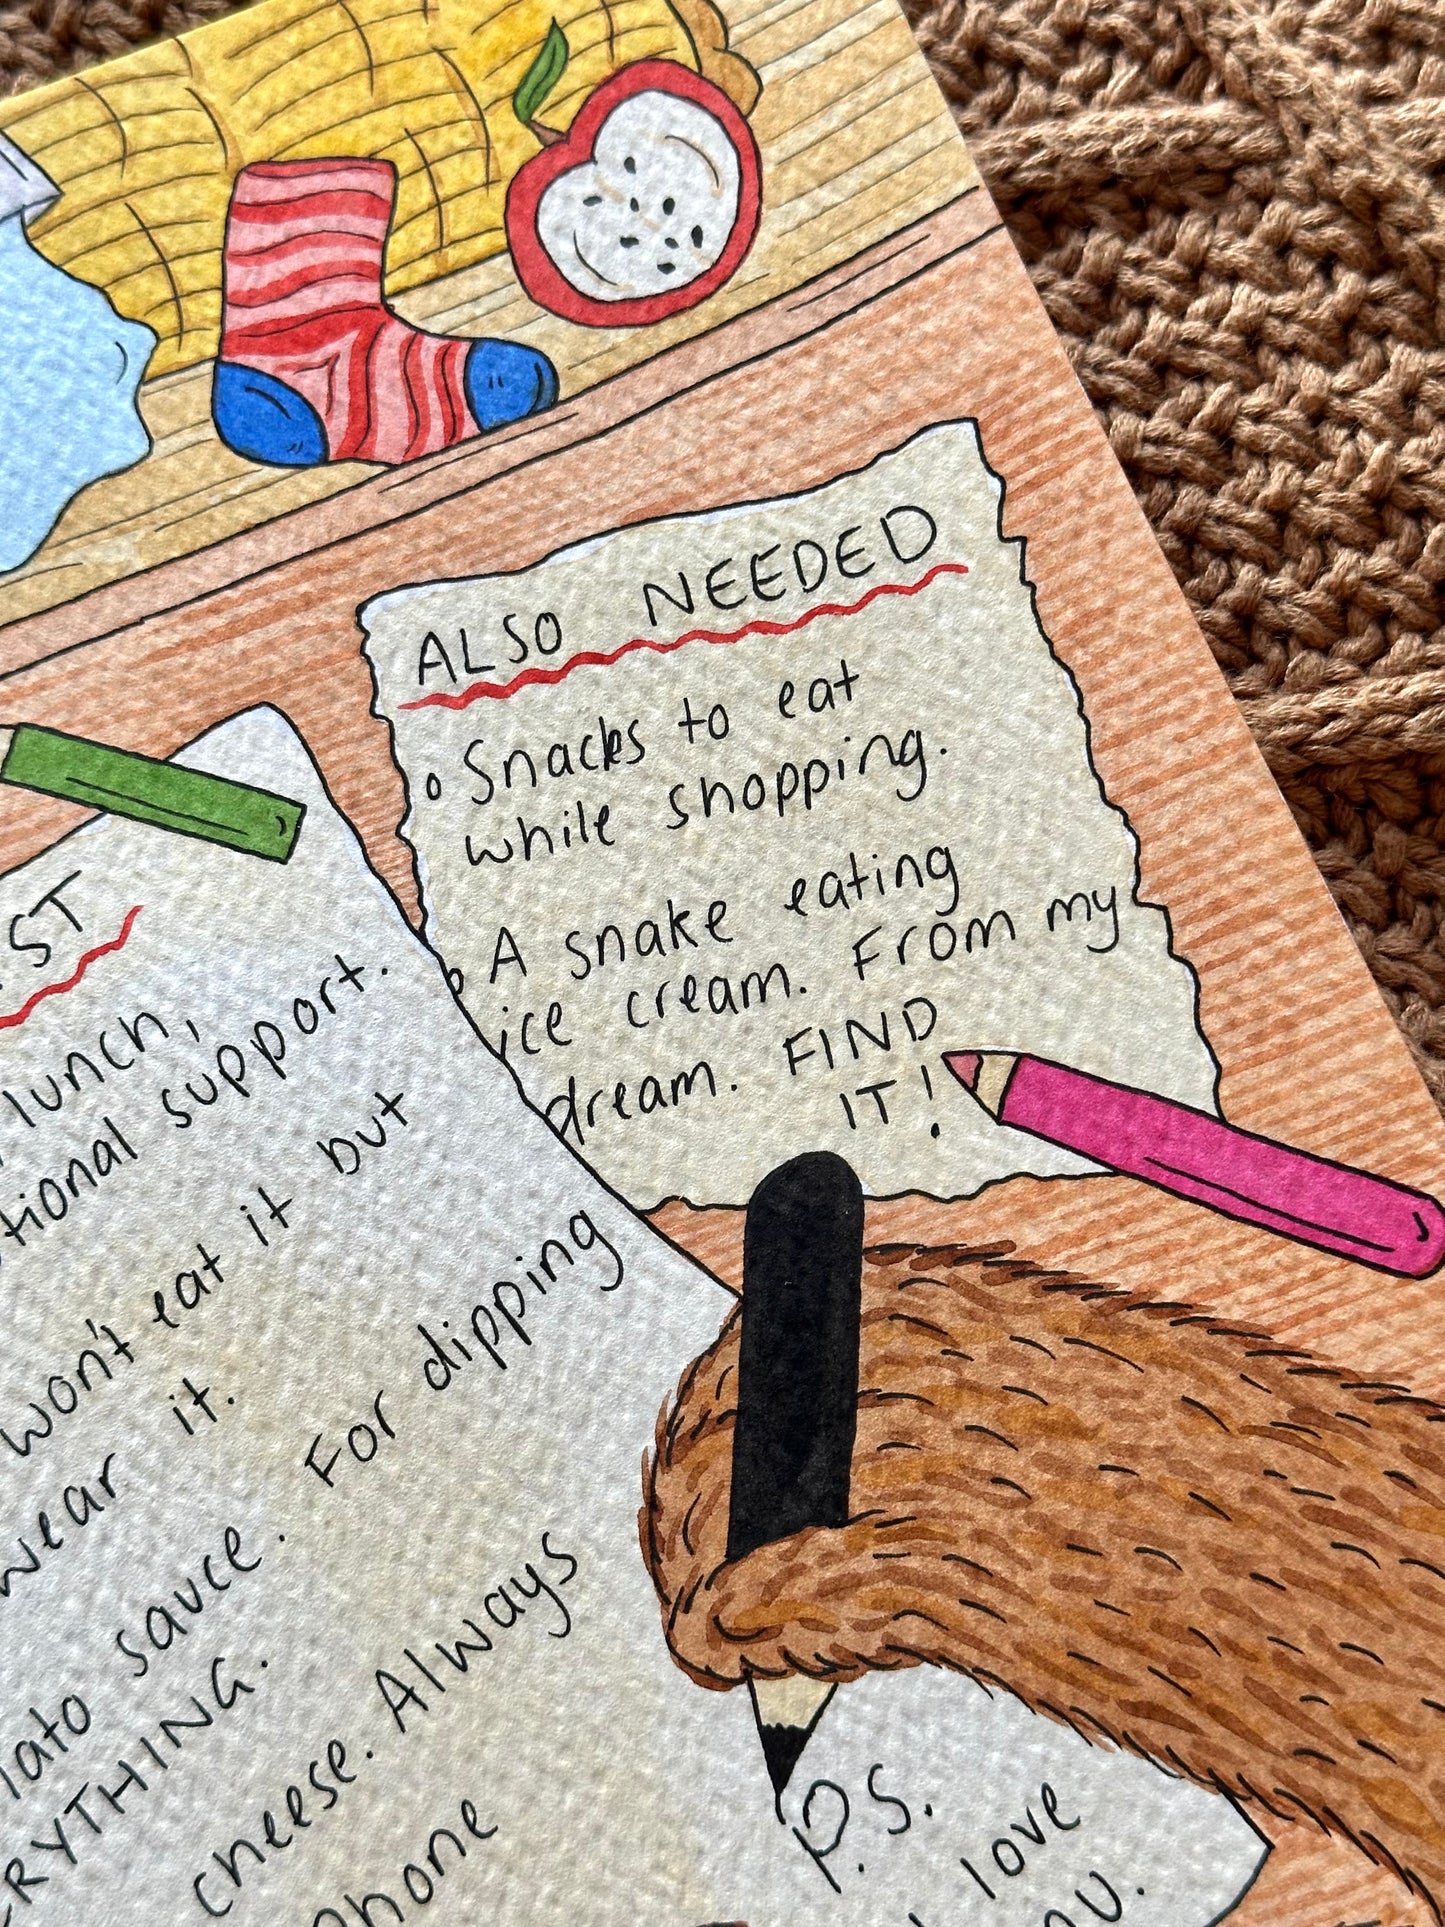 ALSO NEEDED
Snacks to eat
while shopping.
A snake eating
ice cream. From my
dream. FIND
IT!
lunch,
support.
won't eat it but
wear it.
sauce. For dipping
cheese. Always
P.S.
love